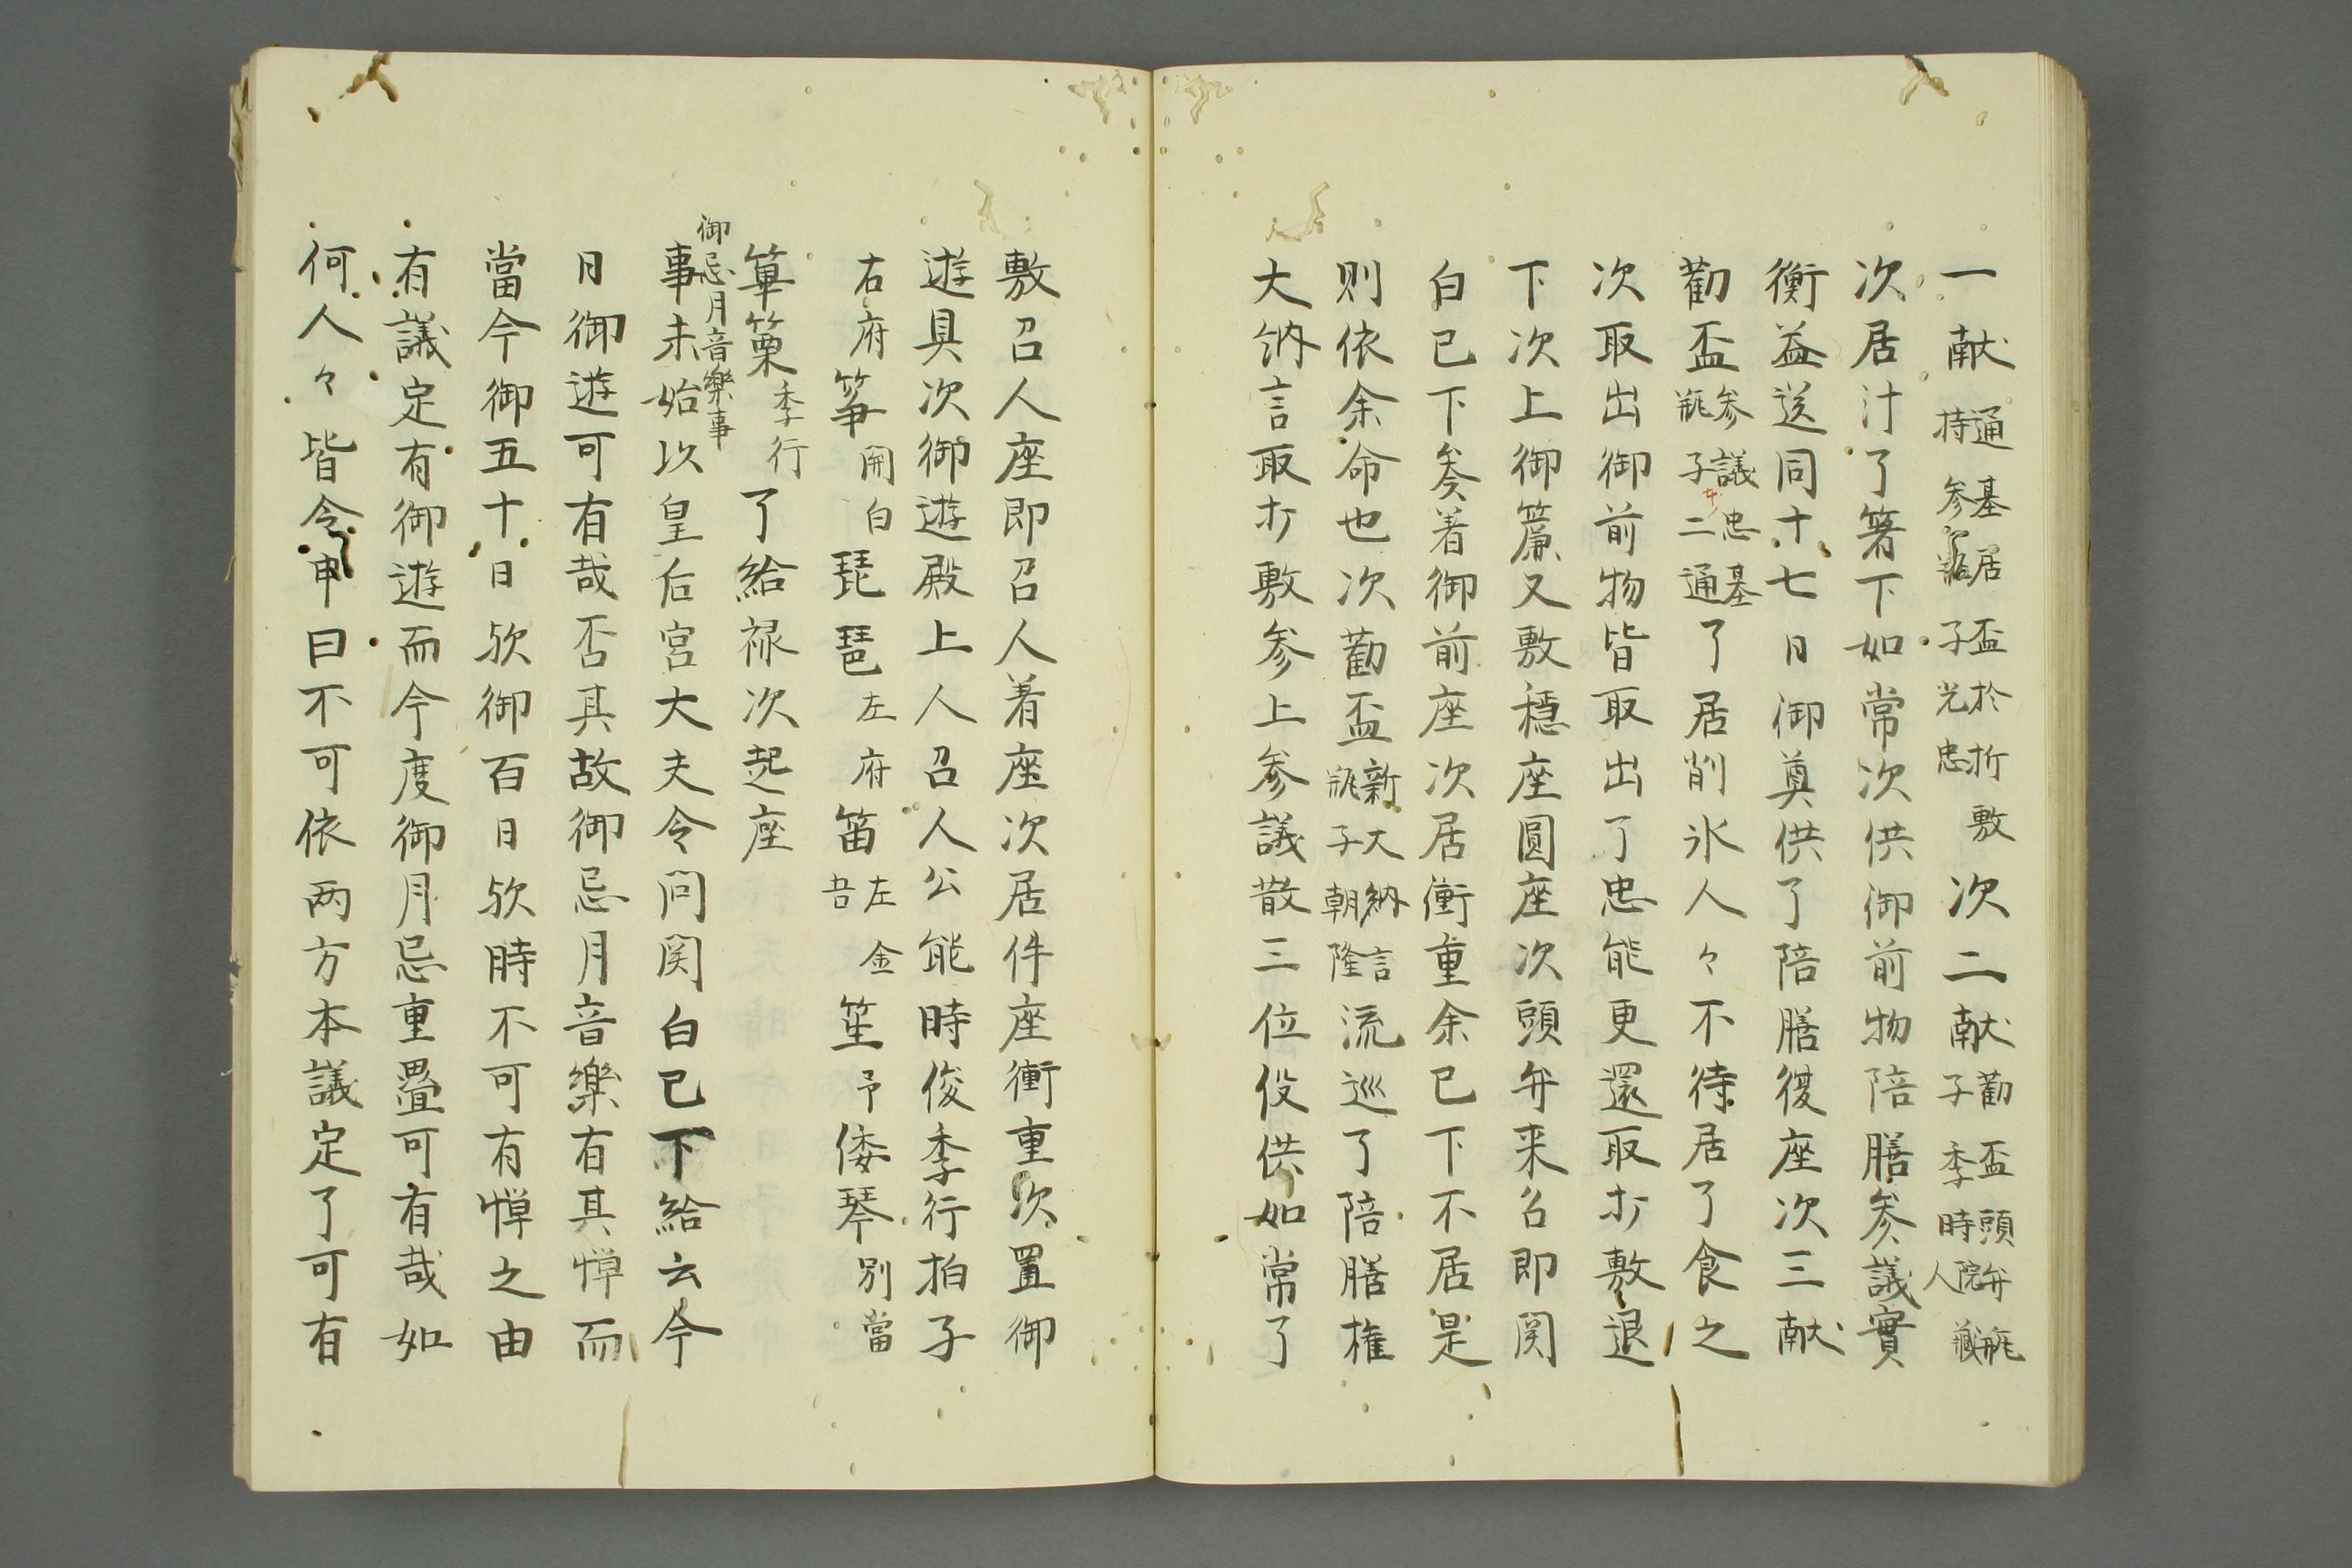 一献通基居盃於折敷持参瓶子光忠次二献勧盃頭弁瓶子季時院蔵人
次居汁了箸下如常次供御前物陪膳参議實
衡益送同十七日御奠供了陪膳復座次三献
勸盃参議忠基瓶子二通了居削氷人々不待居了食之
次取出御前物皆取出了忠能更還取折敷退
下次上御簾又敷穏座圓座次頭弁来召即関
白已下矣着御前座次居衝重余已下不居是
則依余命也次勸盃新大納言瓶子朝隆流巡了陪膳権
大納言取折敷参上参議散三位役供如常了
敷召人座即召人着座次居件座衝重次置御
遊具次御遊殿上人召人公能時俊季行拍子
右府箏関白琵琶左府笛左金吾笙予倭琴別當
篳篥季行了給禄次起座
御忌月音樂事
事未始以皇后宮大夫令問関白已下給云今
日御遊可有哉否其故御忌月音樂有其憚而
當今御五十日欤御百日欤時不可有憚之由
有議定有御遊而今度御月忌重疊可有哉如
何人々皆令申曰不可依両方本議定了可有